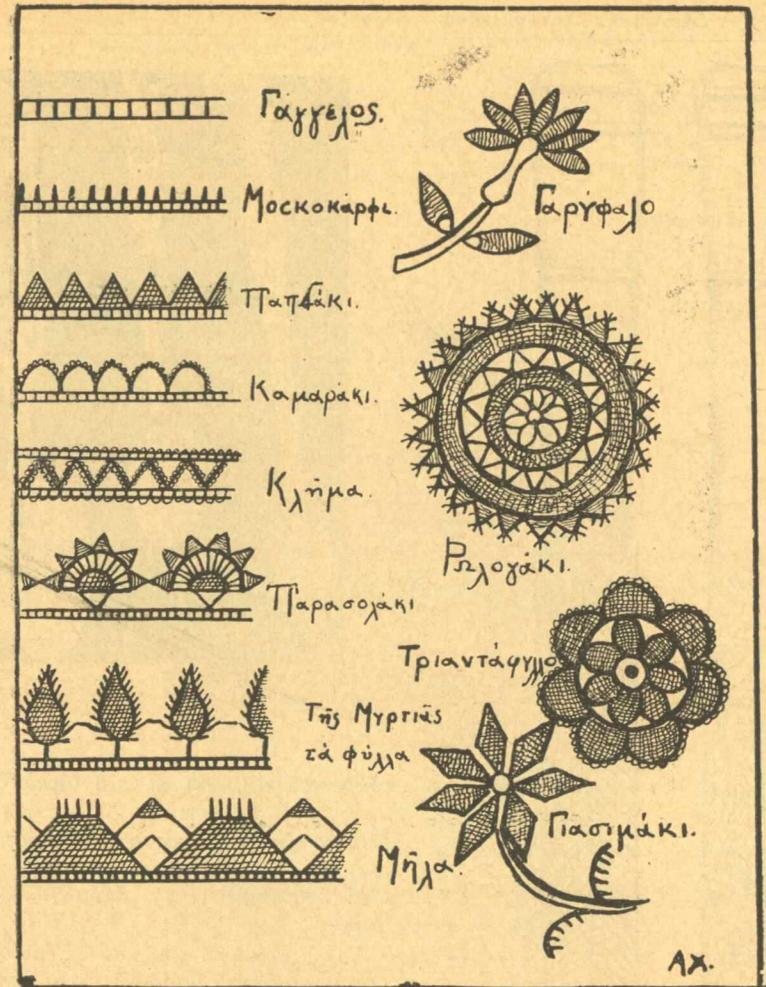 Γάγγελος.
Μοσκοκάρφι.
Καμαράκι.
Κλῆμα.
Παρασολάκι
Τῆς Μυρτιᾶς
τὰ φύλλα
Μῆλα.
Γαρύφαλο
Ρωλογάκι.
Τριαντάφυλλο
Γιασιμάκι.
ΑΧ.